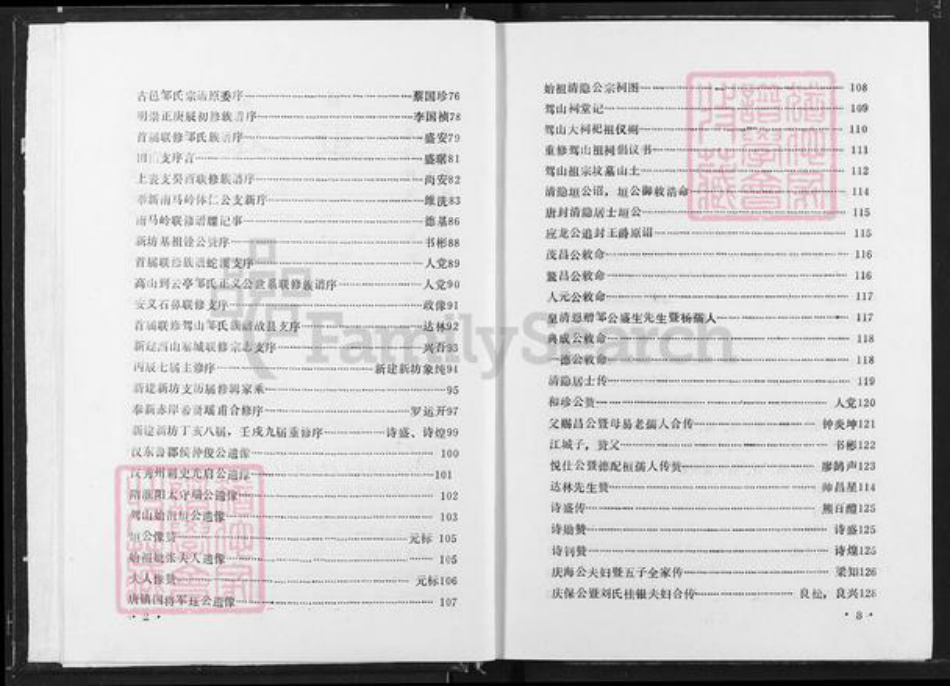 古邑邹氏宗谱原委序……蔡国珍76
明崇正庚辰初修族谱序……李国桢78
首届联修邹氏族谱序……盛安79
支序言……盛琚81
上袁支癸酉联修族谱序……尚安82
奉新南马岭体仁公支新序……维洗83
南马岭联修谱牒记事……德基86
新坊基祖诠公赞序……书彬88
首届联修族谱蛇溪支序……人党89
高山到云亭邹氏正义公世系联修族谱序……人党90
安义石鼻联修支序……政像91
首届联修驾山邹氏族谱故县支序……达林92
新建西山东城联修宗志支序……兴吾93
丙辰七届主修序……新建新坊象纯94
新建新坊支历届修谱家乘……95
奉新赤岸希贤瑶甫合修序……罗运开97
新建新坊丁亥八届，壬戌九届重修序……诗盛、诗煌99
汉东鲁郡侯仲俊公遗像……100
汉秀州刺史光启公遗像……101
隋淮阳太守瑞公遗像……102
驾山始祖垣公遗像……103
垣公像赞……元标 105
始祖妣张夫人遗像……105
夫人像赞……元标106
唐镇国将军垣公遗像……107
· 2 ·
始祖清隐公宗祠图……108
驾山祠堂记……109
驾山大祠祀祖仪……110
重修驾山祖祠倡议书……111
驾山祖宗坟墓山土……112
清隐垣公诏，垣公御敕浩命……114
唐封清隐居士垣公……115
应龙公追封王爵原诏……115
茂昌公敕命……116
鳌昌公敕命……116
人元公敕命……117
皇清恩赠邹公盛生先生暨杨孺人……117
典成公敕命……118
一德公敕命……118
清隐居士传……119
和珍公赞……人党120
父赐昌公暨母易老孺人合传……钟炎坤121
江城子，赞父……书彬122
悦仕公暨德配桓孺人传赞……廖鹄声123
达林先生赞……帅昌星114
诗盛传……熊百醴125
诗勋赞……诗盛125
诗钊赞……诗煌125
庆海公夫妇暨五子全家传……梁知126
庆保公暨刘氏桂银夫妇合传……良松，良兴128
· 3 ·
FamilySearch